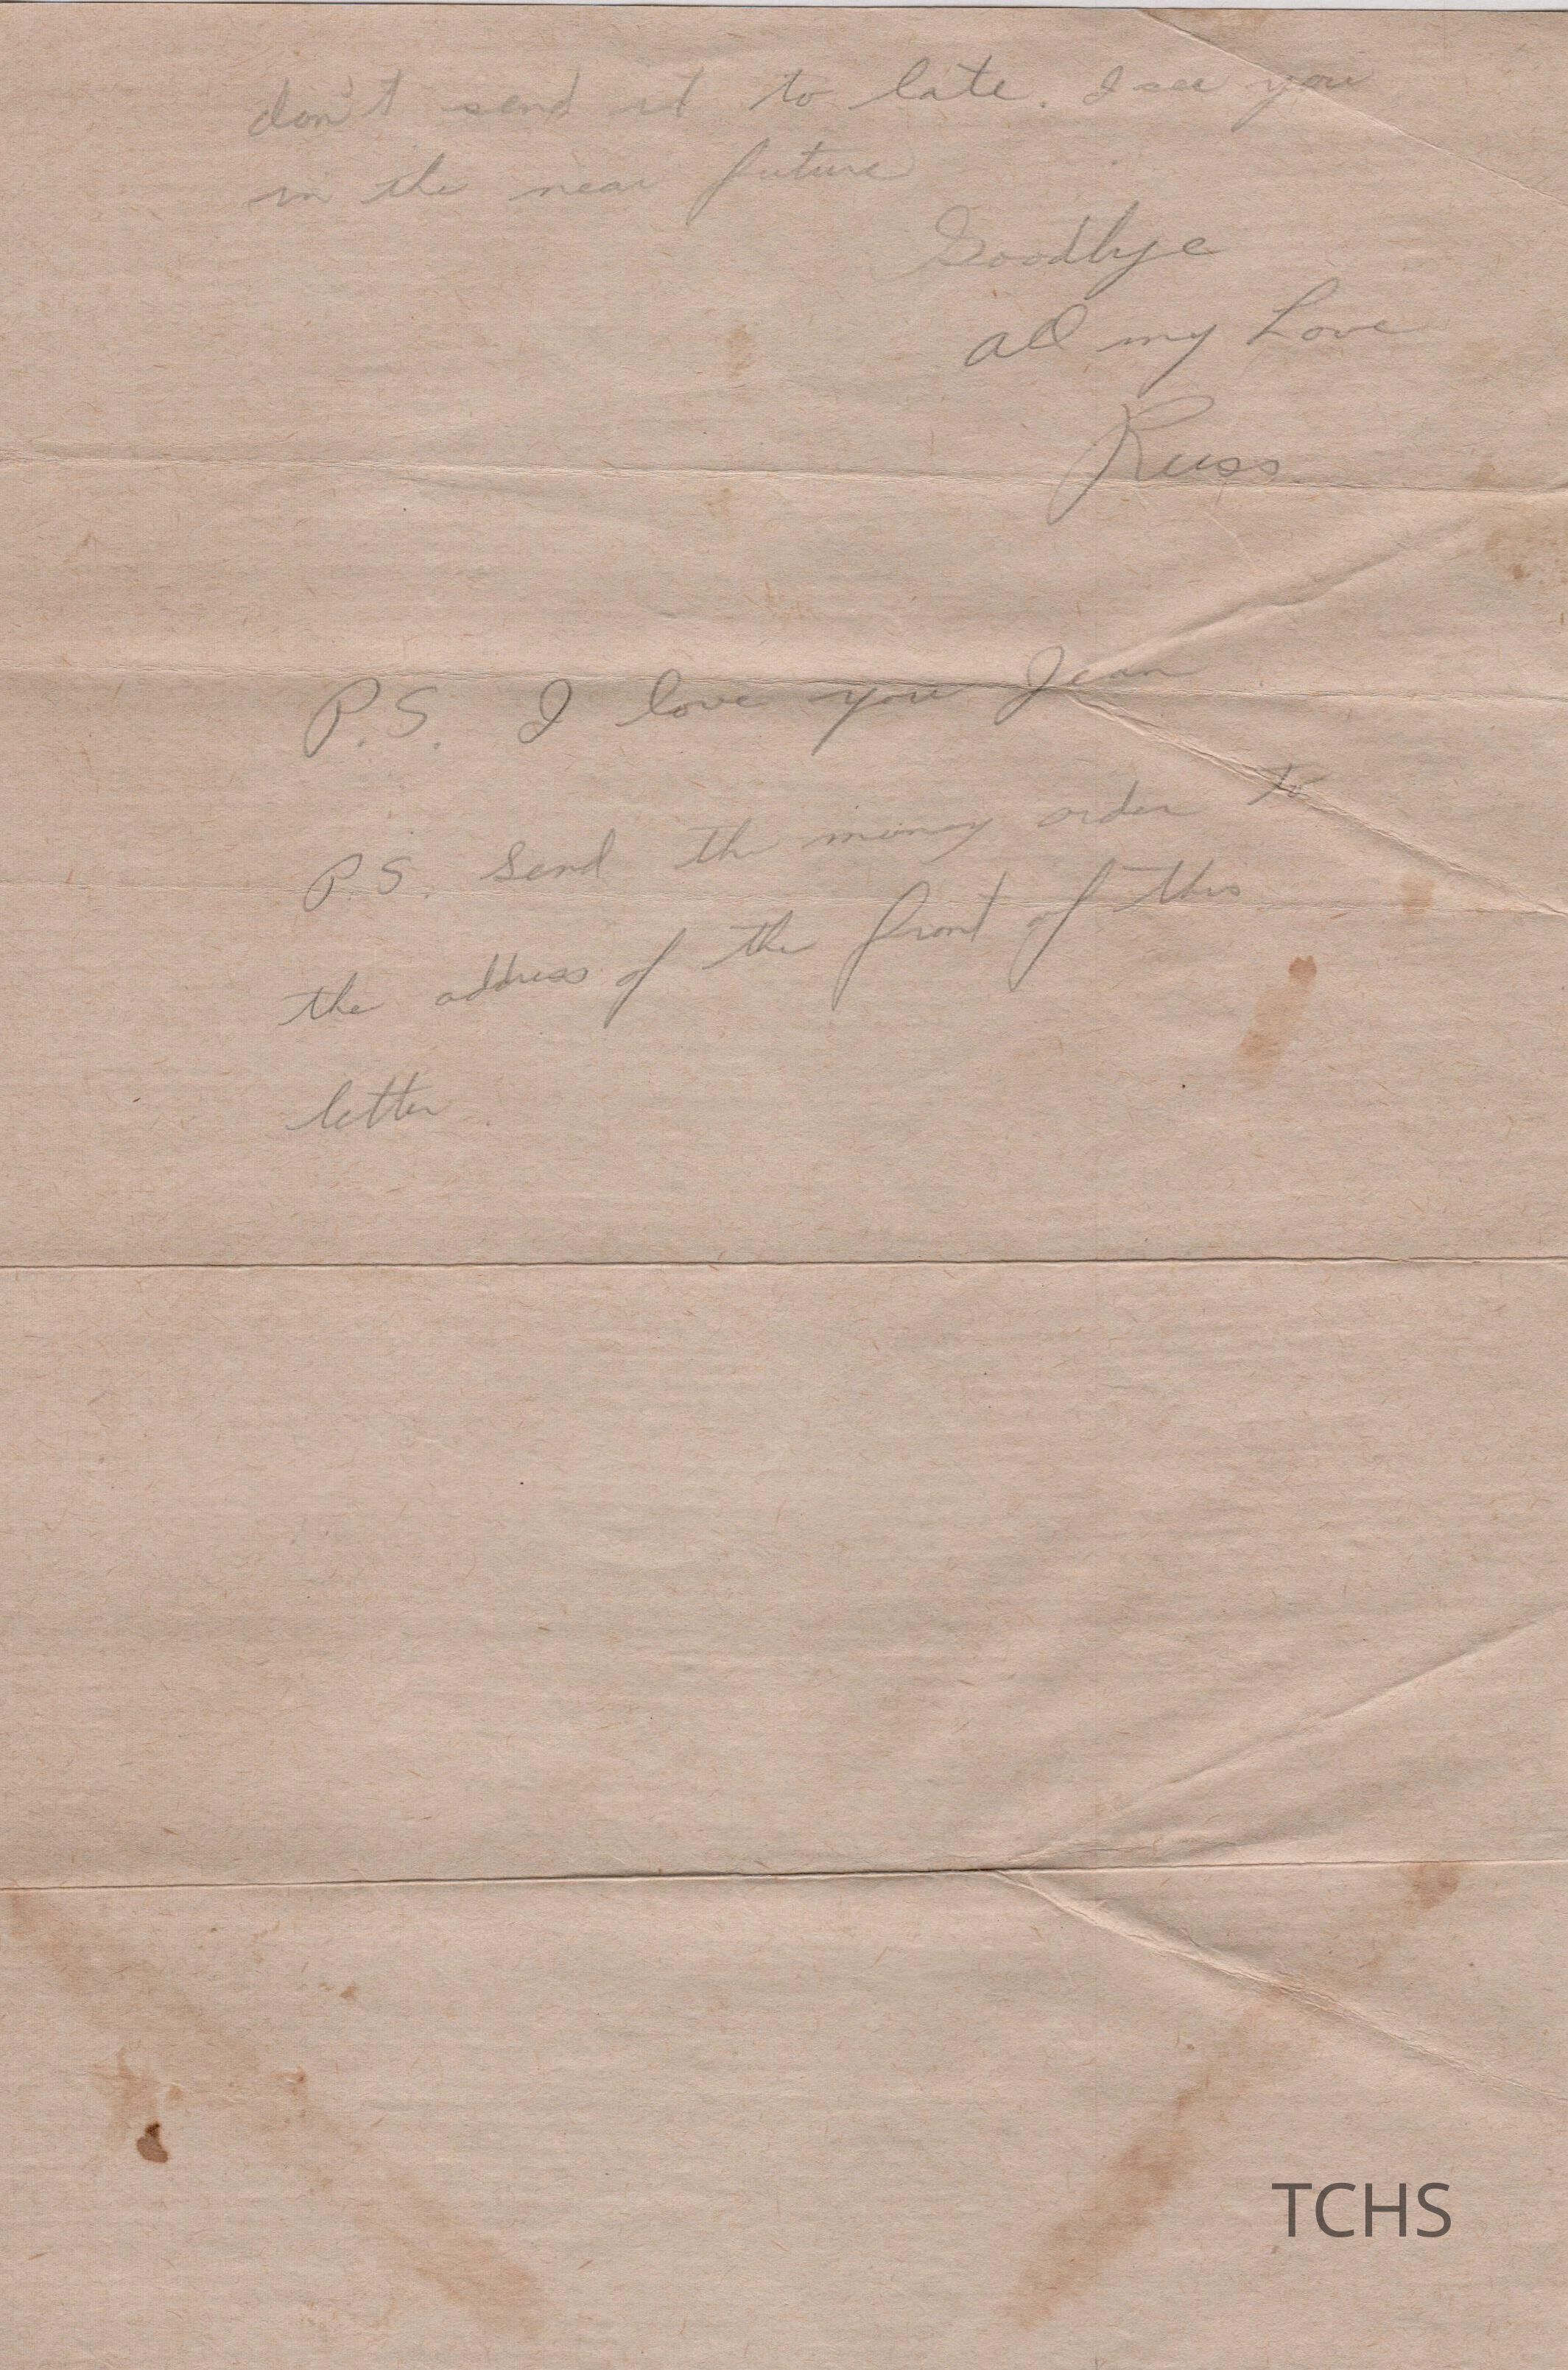 don't send it to late. I see you
in the near future
Goodbye
all my Love
Russ
P.S. I love you Jean
P.S. Send the money order to
the address of the front of this
letter.
TCHS